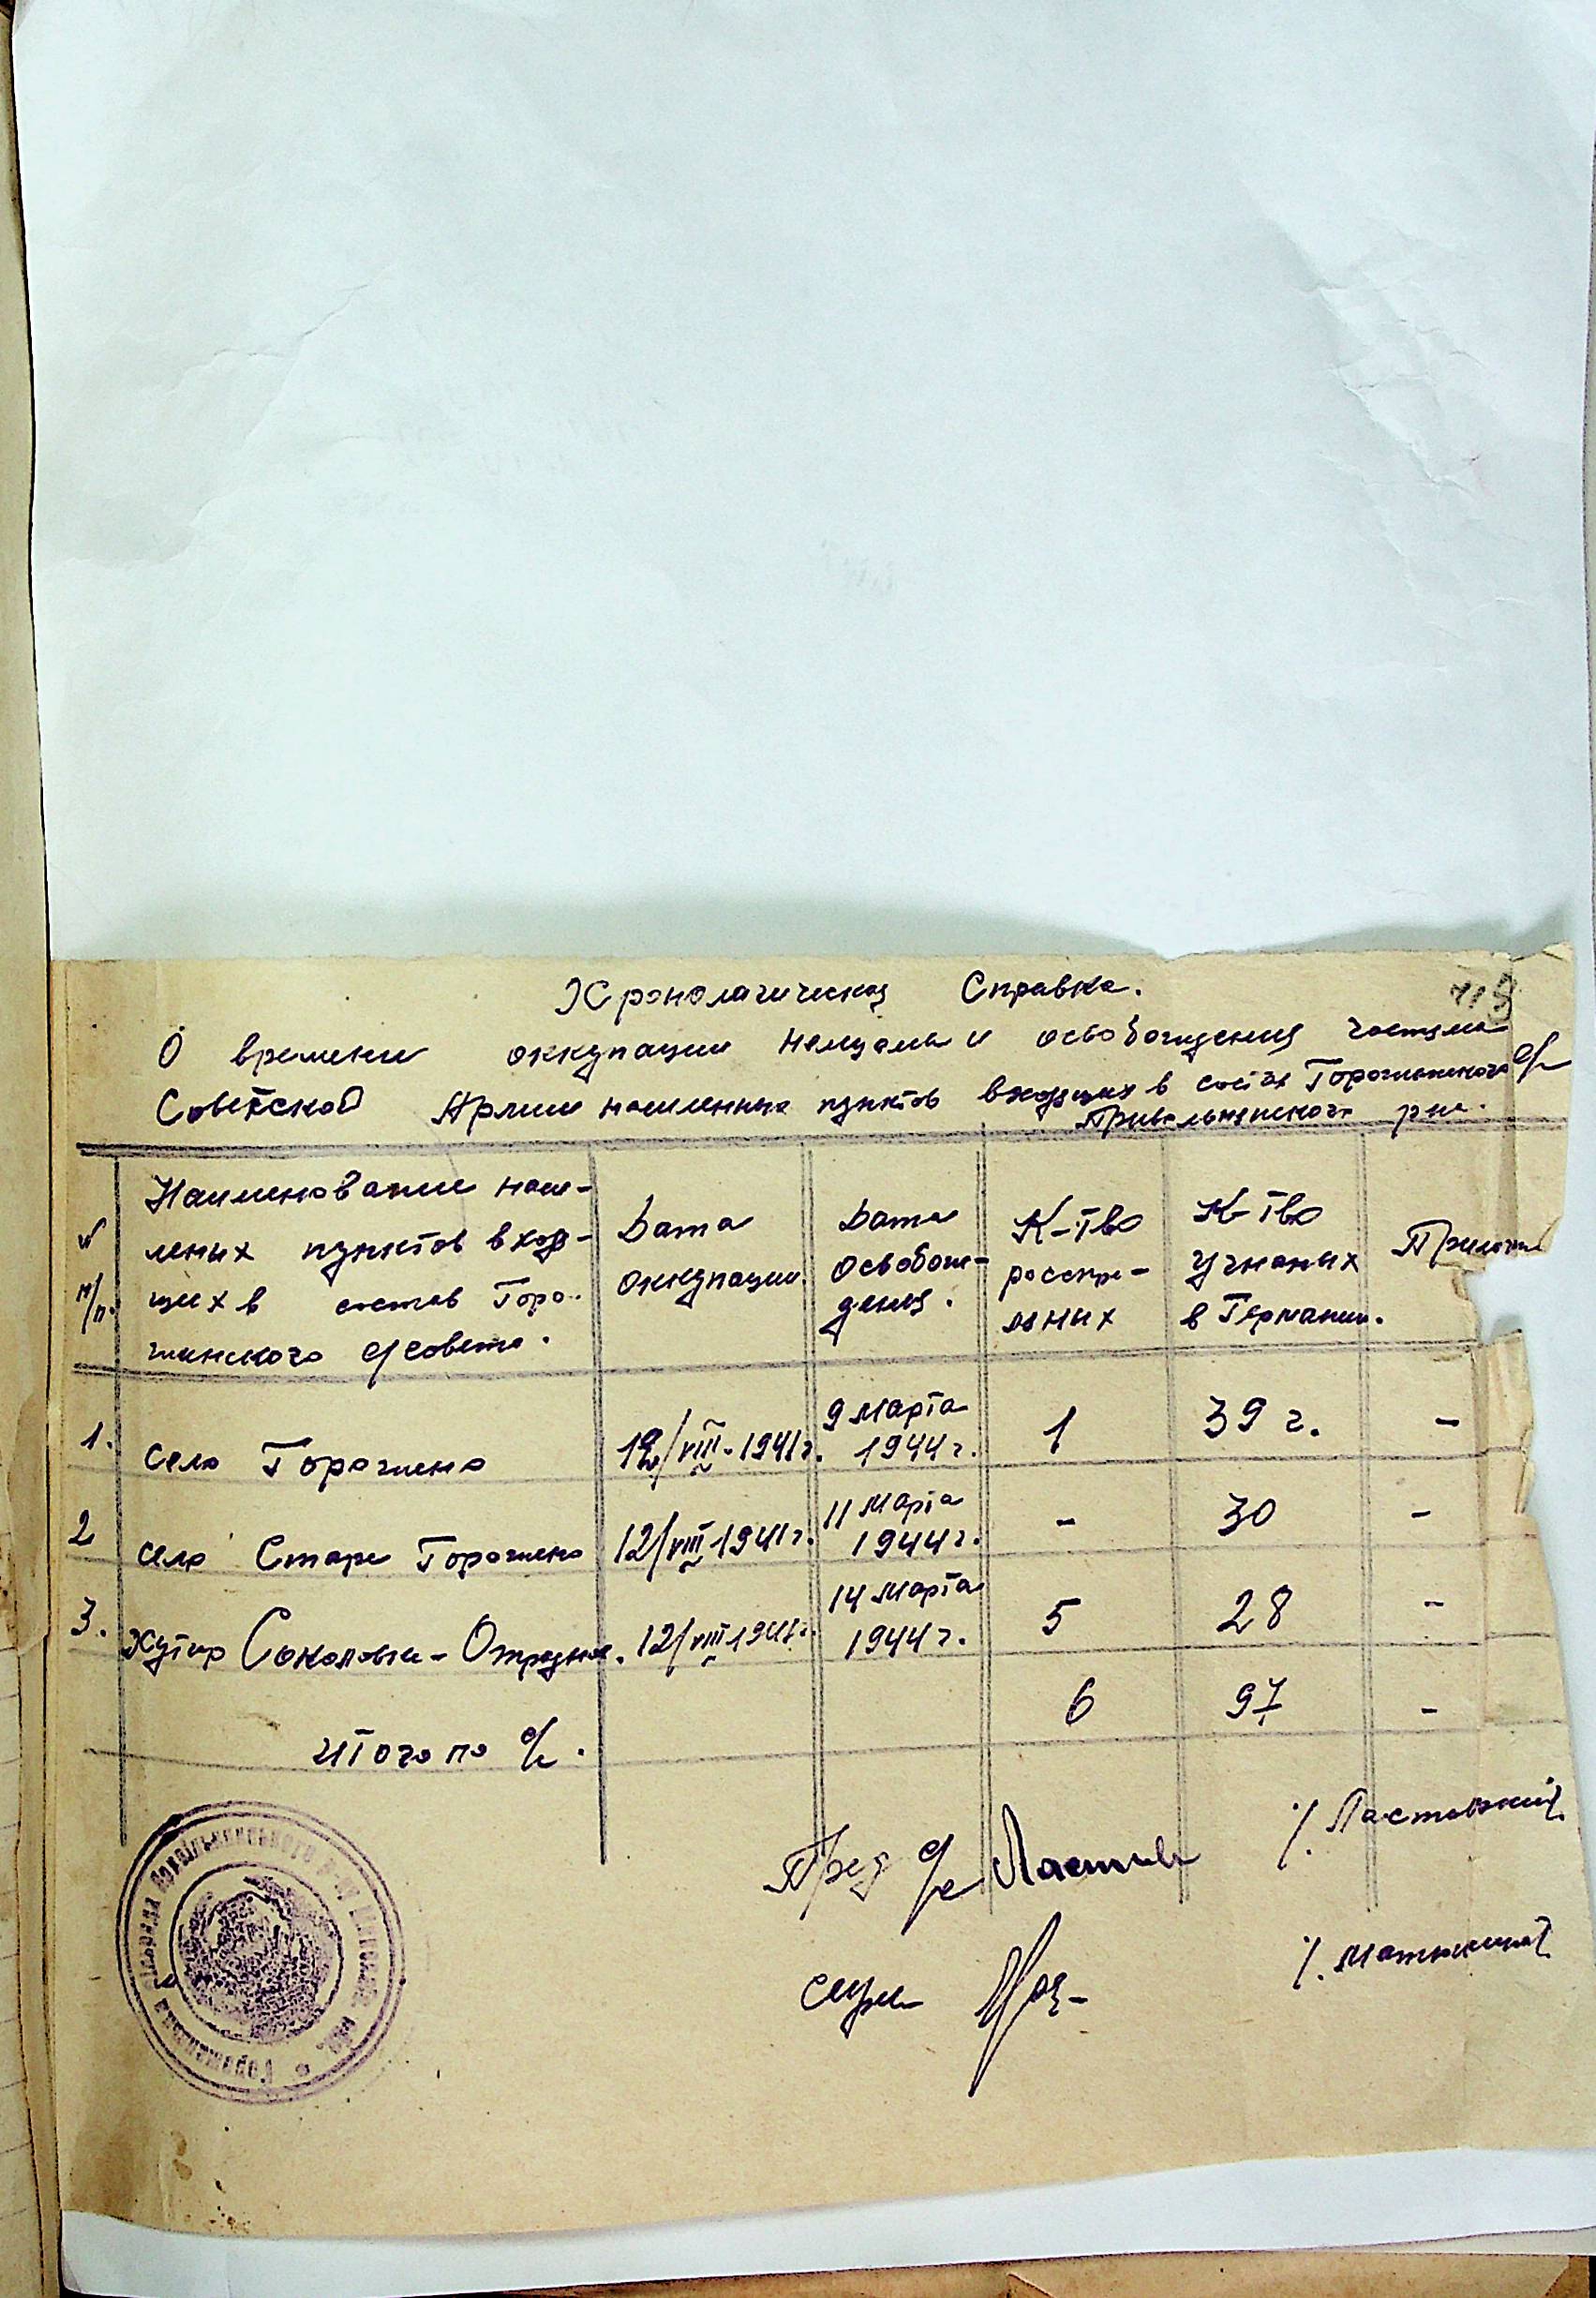 Хронологическая Справка.
О времени оккупации немцами и освобождения частями
Советской Армии населенных пунктов входящих в состав Горожинского с/с
Привольнянского р-на.
№ п/п.
Наименование насе-
леных пунктов вход-
щих в состав Горо-
жинского с/совета.
Дата
оккупации.
Дата
освобож-
дения.
К-тво
расстре-
ляных
К-тво
угнаных
в Германию.
Примеч
1. село Горожино 12/VIII-1941г. 9 марта 1944 г. 1 39 г. -
2 село Старо Горожино 12/VIII 1941г. 11 марта 1944 г. - 30 -
3. Хутор Соколовка-Отрадное. 12/VIII 1941г. 14 марта 1944 г. 5 28 -
Итого по с/с. 6 97 -
Пред с/с /. Ластовский
секр /.